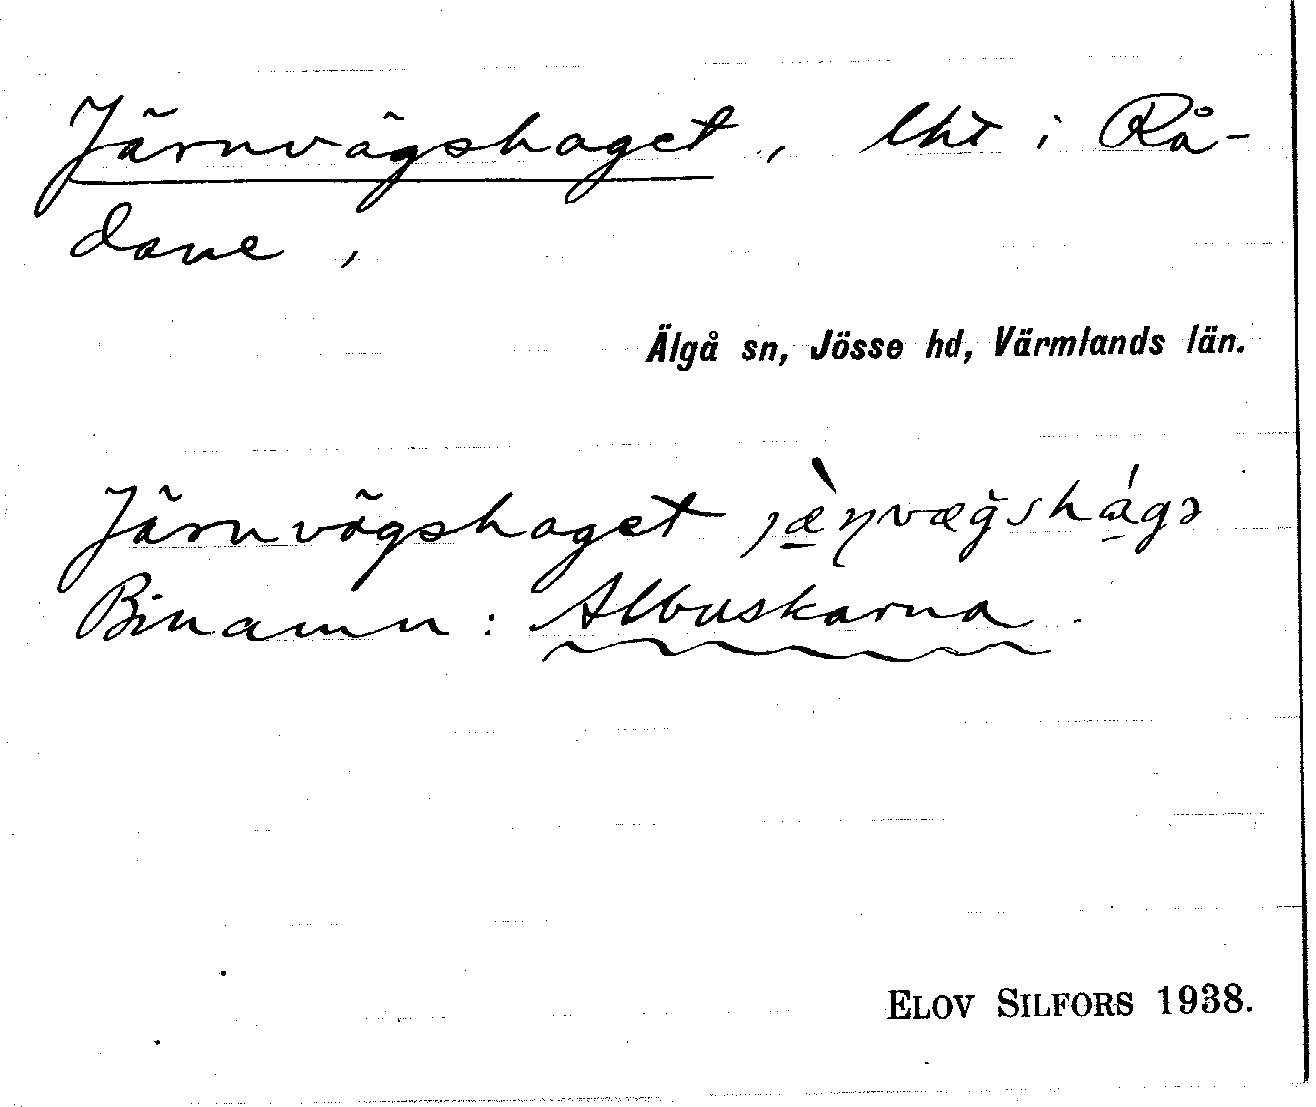 Järnvägshaget, lht i Rå-
dane,
Älgå sn, Jösse hd, Värmlands län.
Järnvägshaget
Binamn: Albuskarna.
ELOV SILFORS 1938.